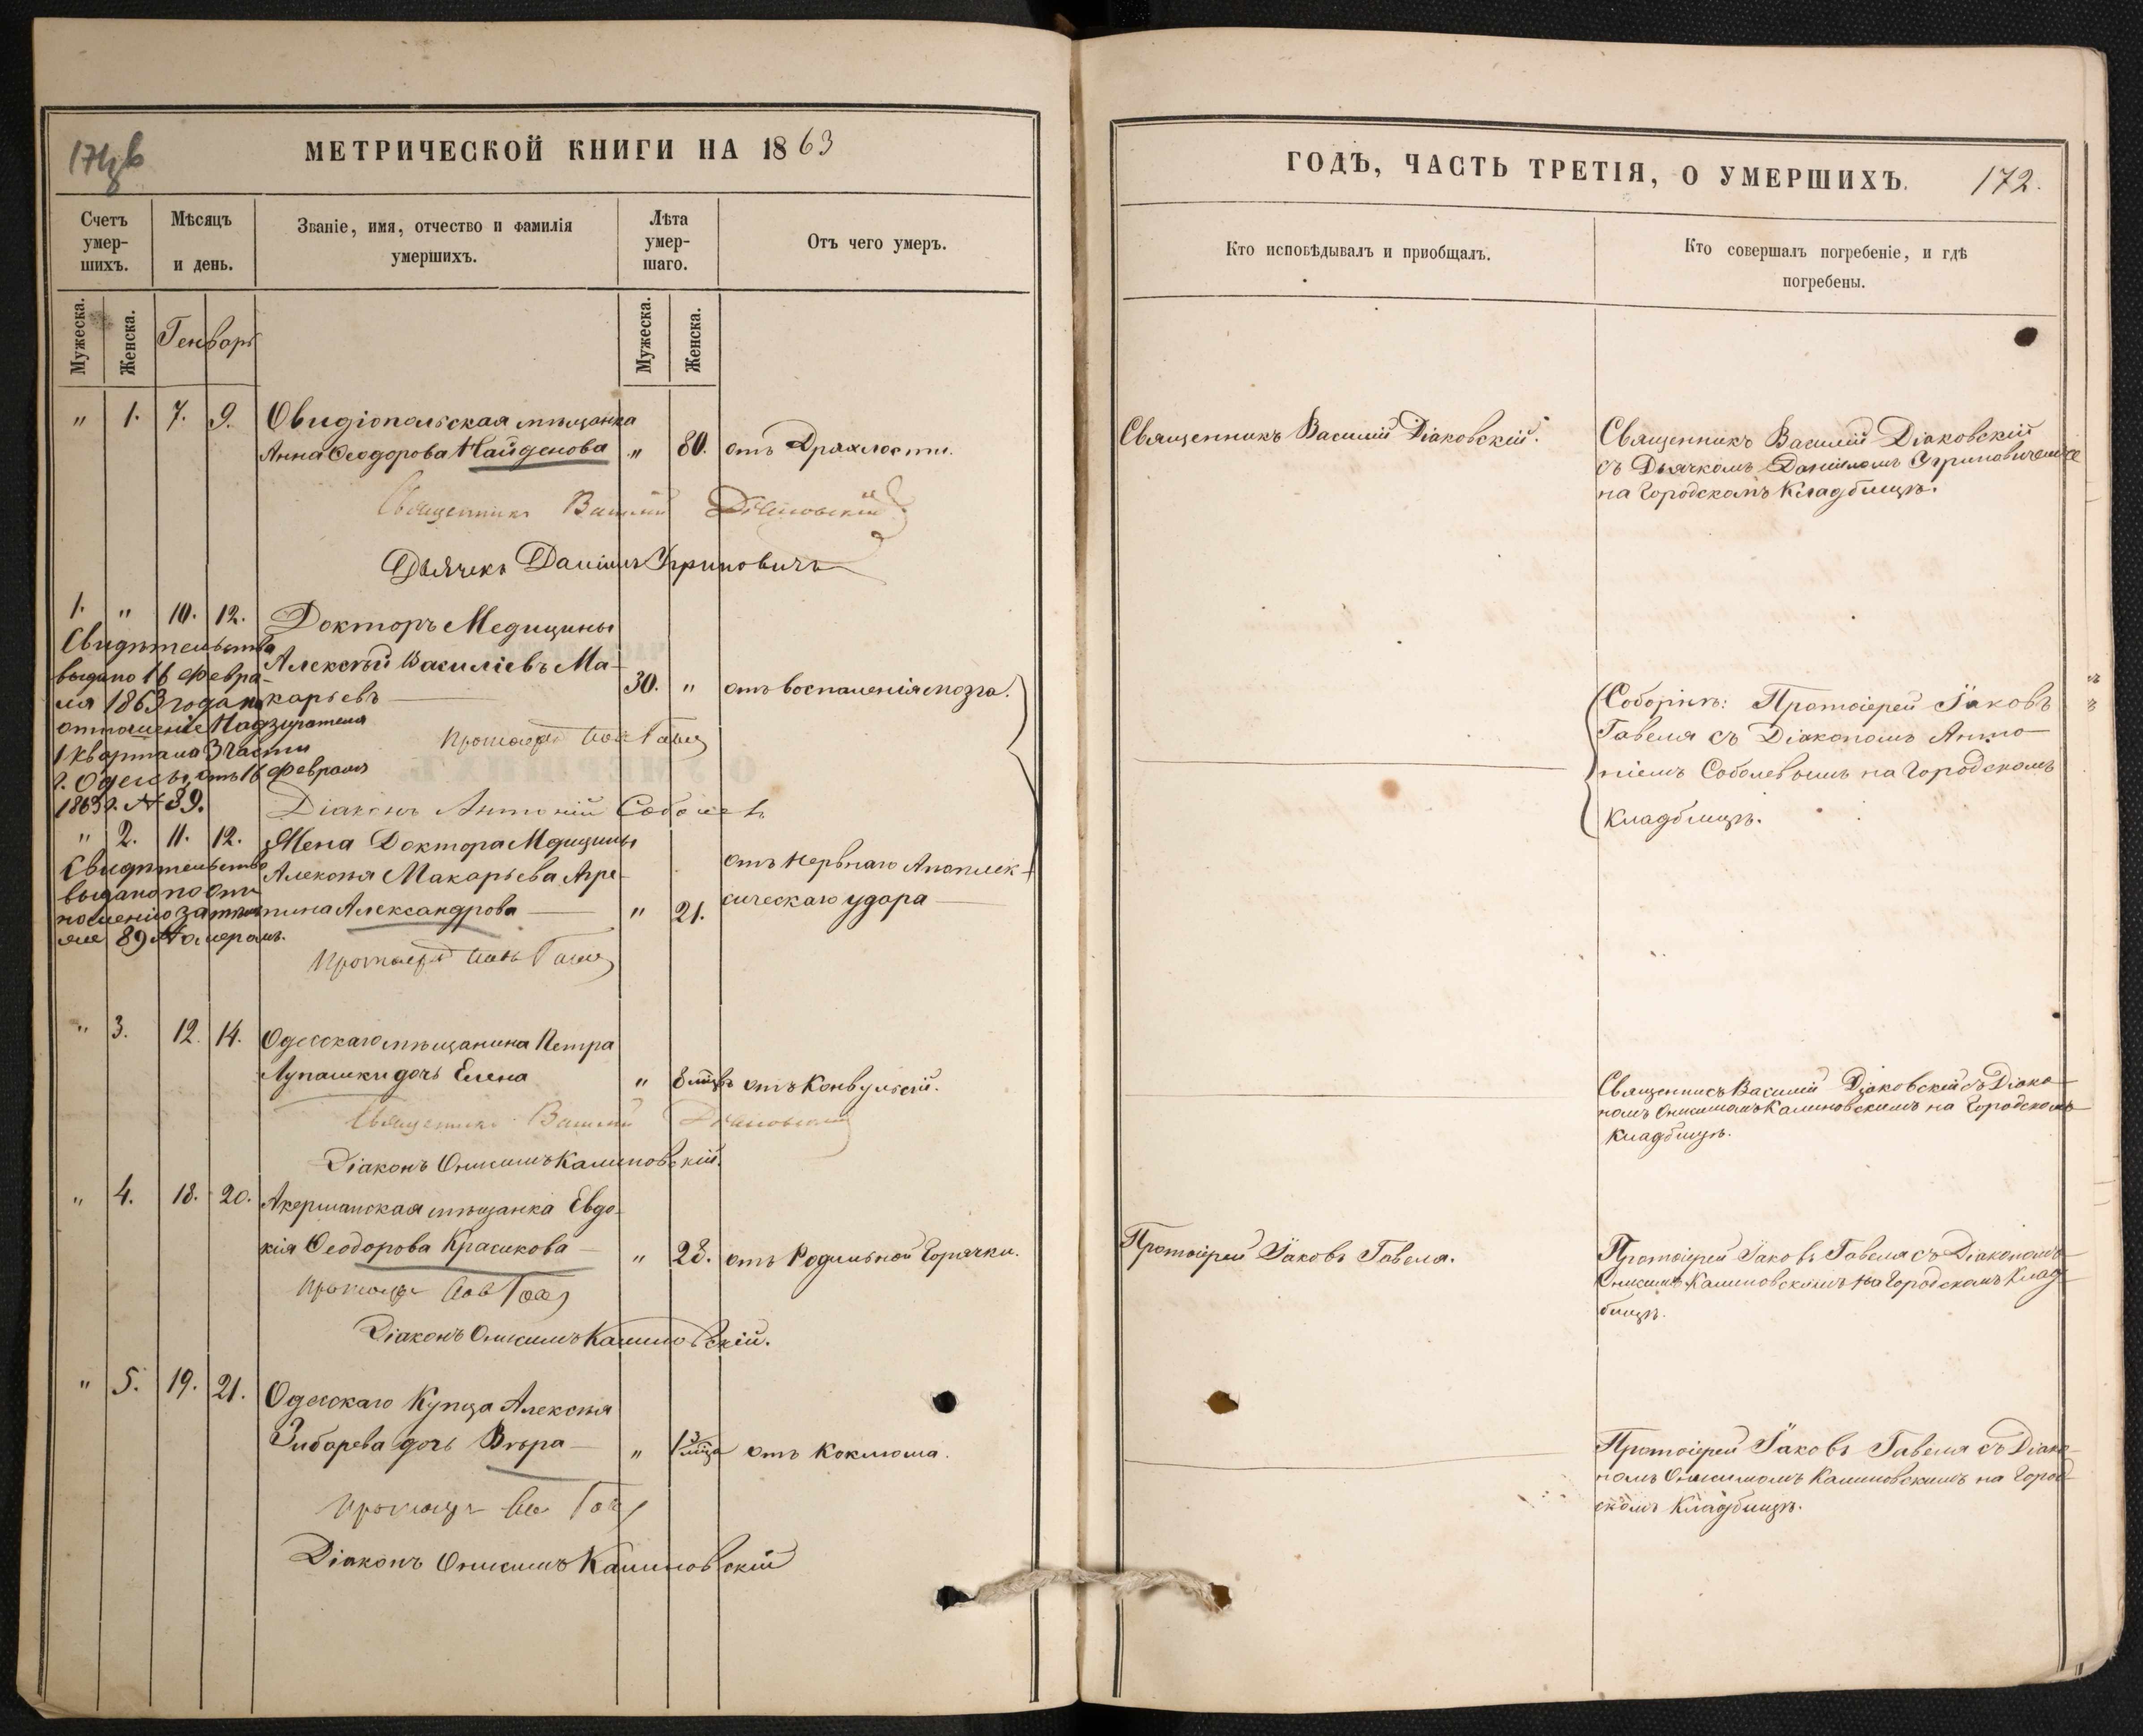 МЕТРИЧЕСКОЙ КНИГИ НА 1863
Счетъ умер-
шихъ.
Мѣсяцъ
и день.
Званіе, имя, отчество и фамилія
умершихъ.
Лѣта
умер-
шаго.
Отъ чего умеръ.
Мужеска.
Женска.
Генварь
Мужеска.
Женска.
" 1. 7. 9. Овидіопольская мѣщанка
Анна Ѳеодорова Найденова " 80. отъ Дряхлости.
Священникъ Василій Діаковскій
Дьячекъ Даніилъ Угриновичъ
1. " 10. 12. Докторъ Медицины
Свидѣтельство
Алексѣй Василіевъ Ма-
выдано 16 Февра-
30. " отъ воспаленія мозга.
ля 1863 года на
карьевъ
отношеніе Надзирателя
1 квартала 3 части
Протоіерей Іаковъ Гавеля
г. Одессы, отъ 16 февраля
1863 г. № 89.
Діаконъ Антоній Соболевъ
" 2. 11. 12. Жена Доктора Медицины
Свидѣтельство
Алексѣя Макарьева Агре-
отъ Нервнаго Апоплек-
выдано по отно
ношенію за тѣмъ
пина Александрова " 21. сическаго удара
же 89 Номеромъ.
Протоіерей Іаковъ Гавеля
" 3. 12. 14. Одесскаго мѣщанина Петра
Лупашки дочь Елена " 8 мцвъ отъ Конвульсій.
Священникъ Василій Діаковскій
Діаконъ Онисимъ Калиновскій.
" 4. 18. 20. Акерманская мѣщанка Евдо-
кія Ѳеодорова Красикова " 28. отъ Родильной Горячки.
Протоіерей Іаковъ Гавеля
Діаконъ Онисимъ Калиновскій.
" 5. 19. 21. Одесскаго Купца Алексѣя
Зибарева дочь Вѣра " отъ Коклюша.
Протоіерей Іаковъ Гавеля
Діаконъ Онисимъ Калиновскій
ГОДЪ, ЧАСТЬ ТРЕТІЯ, О УМЕРШИХЪ. 172.
Кто исповѣдывалъ и пріобщалъ.
Кто совершалъ погребеніе, и гдѣ
погребены.
Священникъ Василій Діаковскій.
Священникъ Василій Діаковскій
съ Дьячкомъ Даніиломъ Угриновичемъ
на Городскомъ Кладбищѣ.
Соборнѣ: Протоіерей Іаковъ
Гавеля съ Діакономъ Анто-
ніемъ Соболевымъ на Городскомъ
Кладбищѣ.
Священникъ Василій Діаковскій съ Діако-
номъ Онисимомъ Калиновскимъ на Городскомъ
Кладбищѣ.
Протоіерей Іаковъ Гавеля.
Протоіерей Іаковъ Гавеля съ Діакономъ
Онисимъ Калиновскомъ на ГородскомъКлад-
бищѣ.
Протоіерей Іаковъ Гавеля съ Діако-
номъ Онисимомъ Калиновскимъ на Город-
скомъ Кладбищѣ.